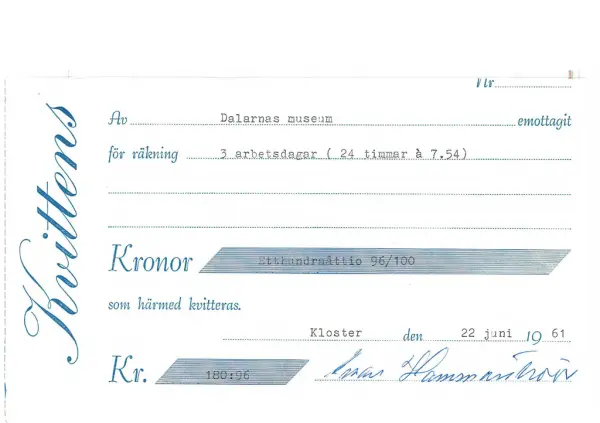 Kvittens
Nr
Av Dalarnas museum emottagit
för räkning 3 arbetsdagar ( 24 timmar à 7.54)
Kronor Etthundraåttio 96/100
som härmed kvitteras.
Kloster den 22 juni 1961
Kr. 180:96 Hammarström